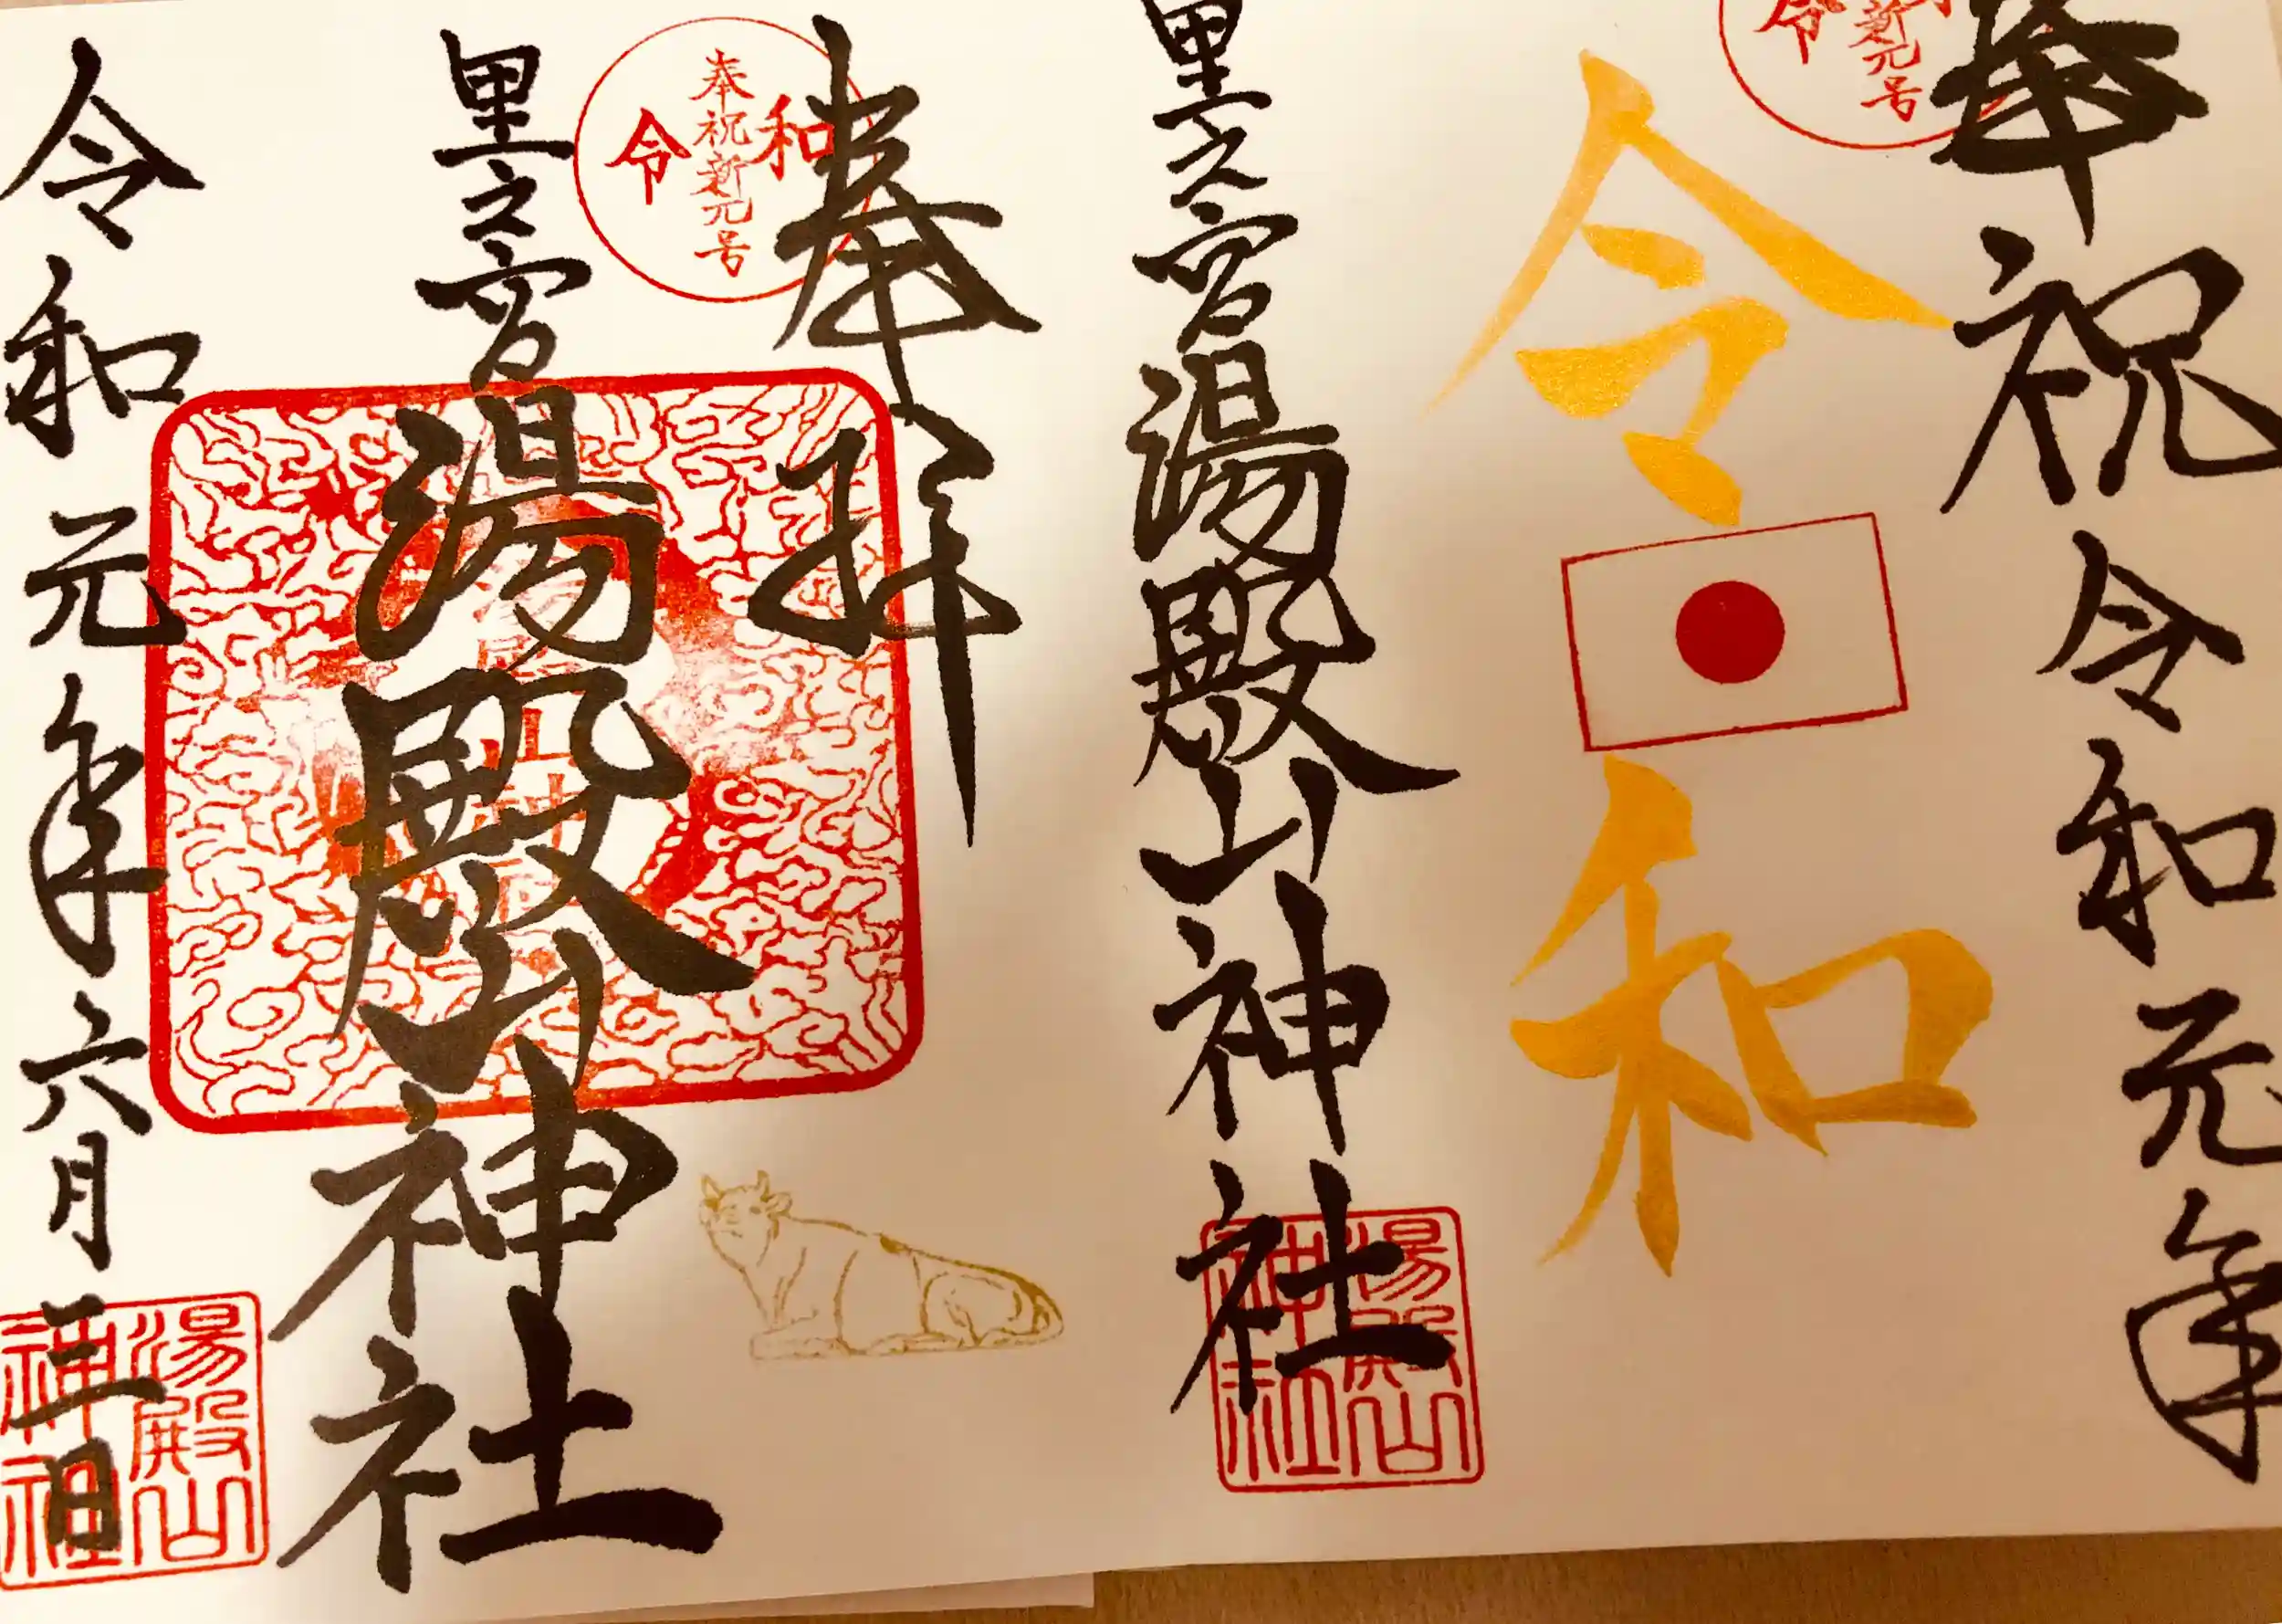 奉祝 令和元年
奉祝新元号
令
令和
里之宮 湯殿山神社
湯殿山
神社
奉拝
奉祝新元号
令和
里之宮
湯殿山神社
令和元年六月三日
湯殿山
神社